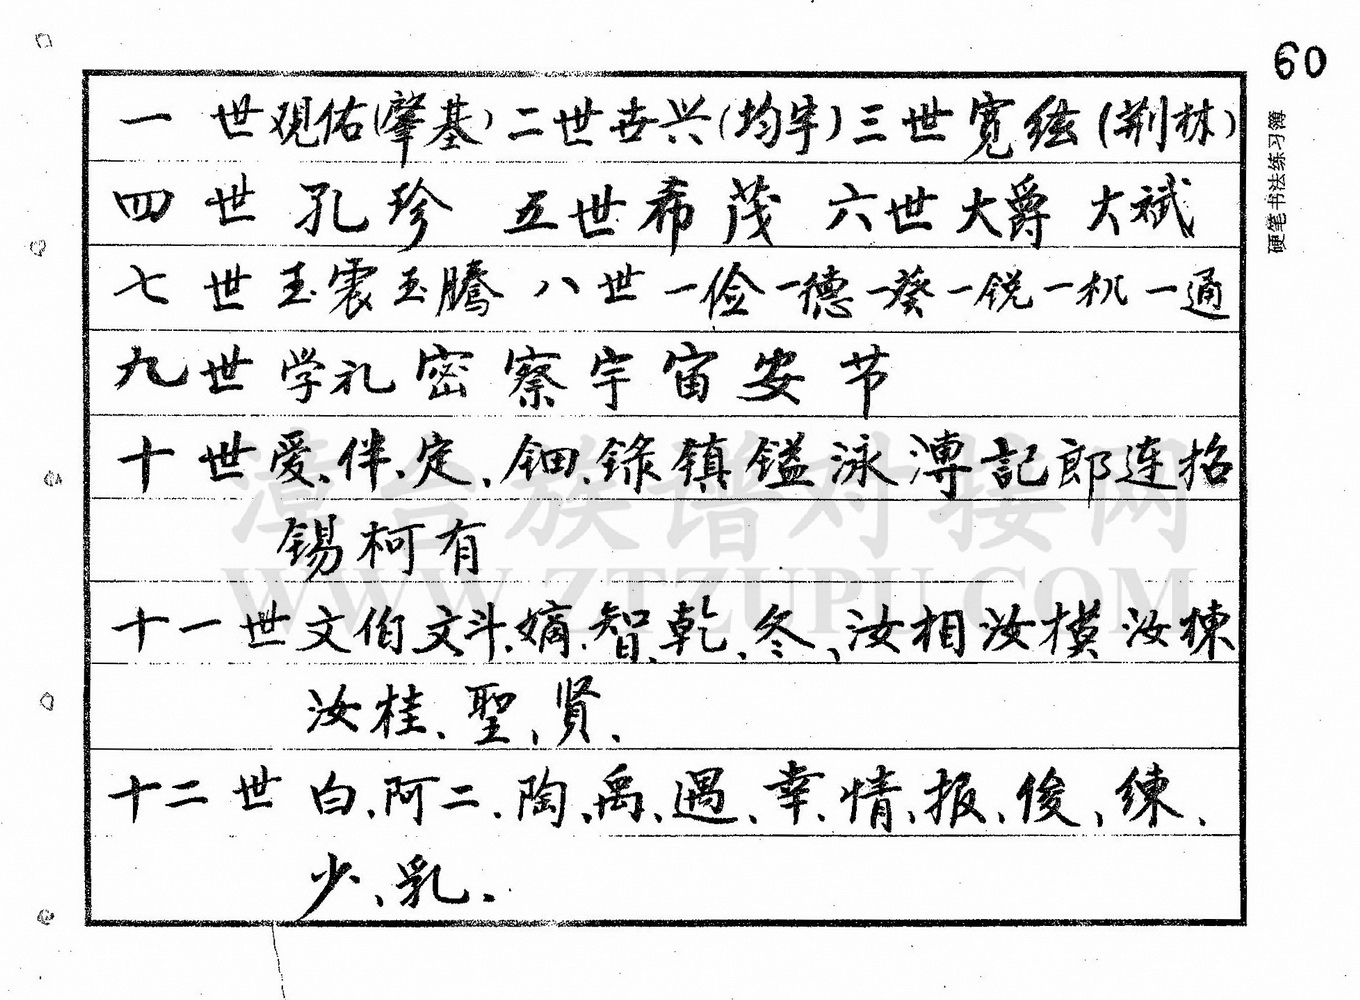 60
硬笔书法练习簿
一 世观佑(肇基)二世去兴(均宇)三世宽纮(荆林)
四 世 孔 珍 五世希 茂 六世大爵 大斌
七 世玉震玉騰 八世一俭一德一葵一锐一机一通
九世学礼 密 察 宇 宙 安 节
十 世爱、伴、定、钿、錄鎮鎰泳溥記郎连招
锡柯有
十一世文伯文斗、嫡、智、乾、冬、汝相汝模汝棟
汝桂、聖、贤、
十二世 白、阿二、陶、禹、遇、幸、情、振、俊、練、
少、乳.
漳台族谱对接网
WWW.ZTZUPU.COM